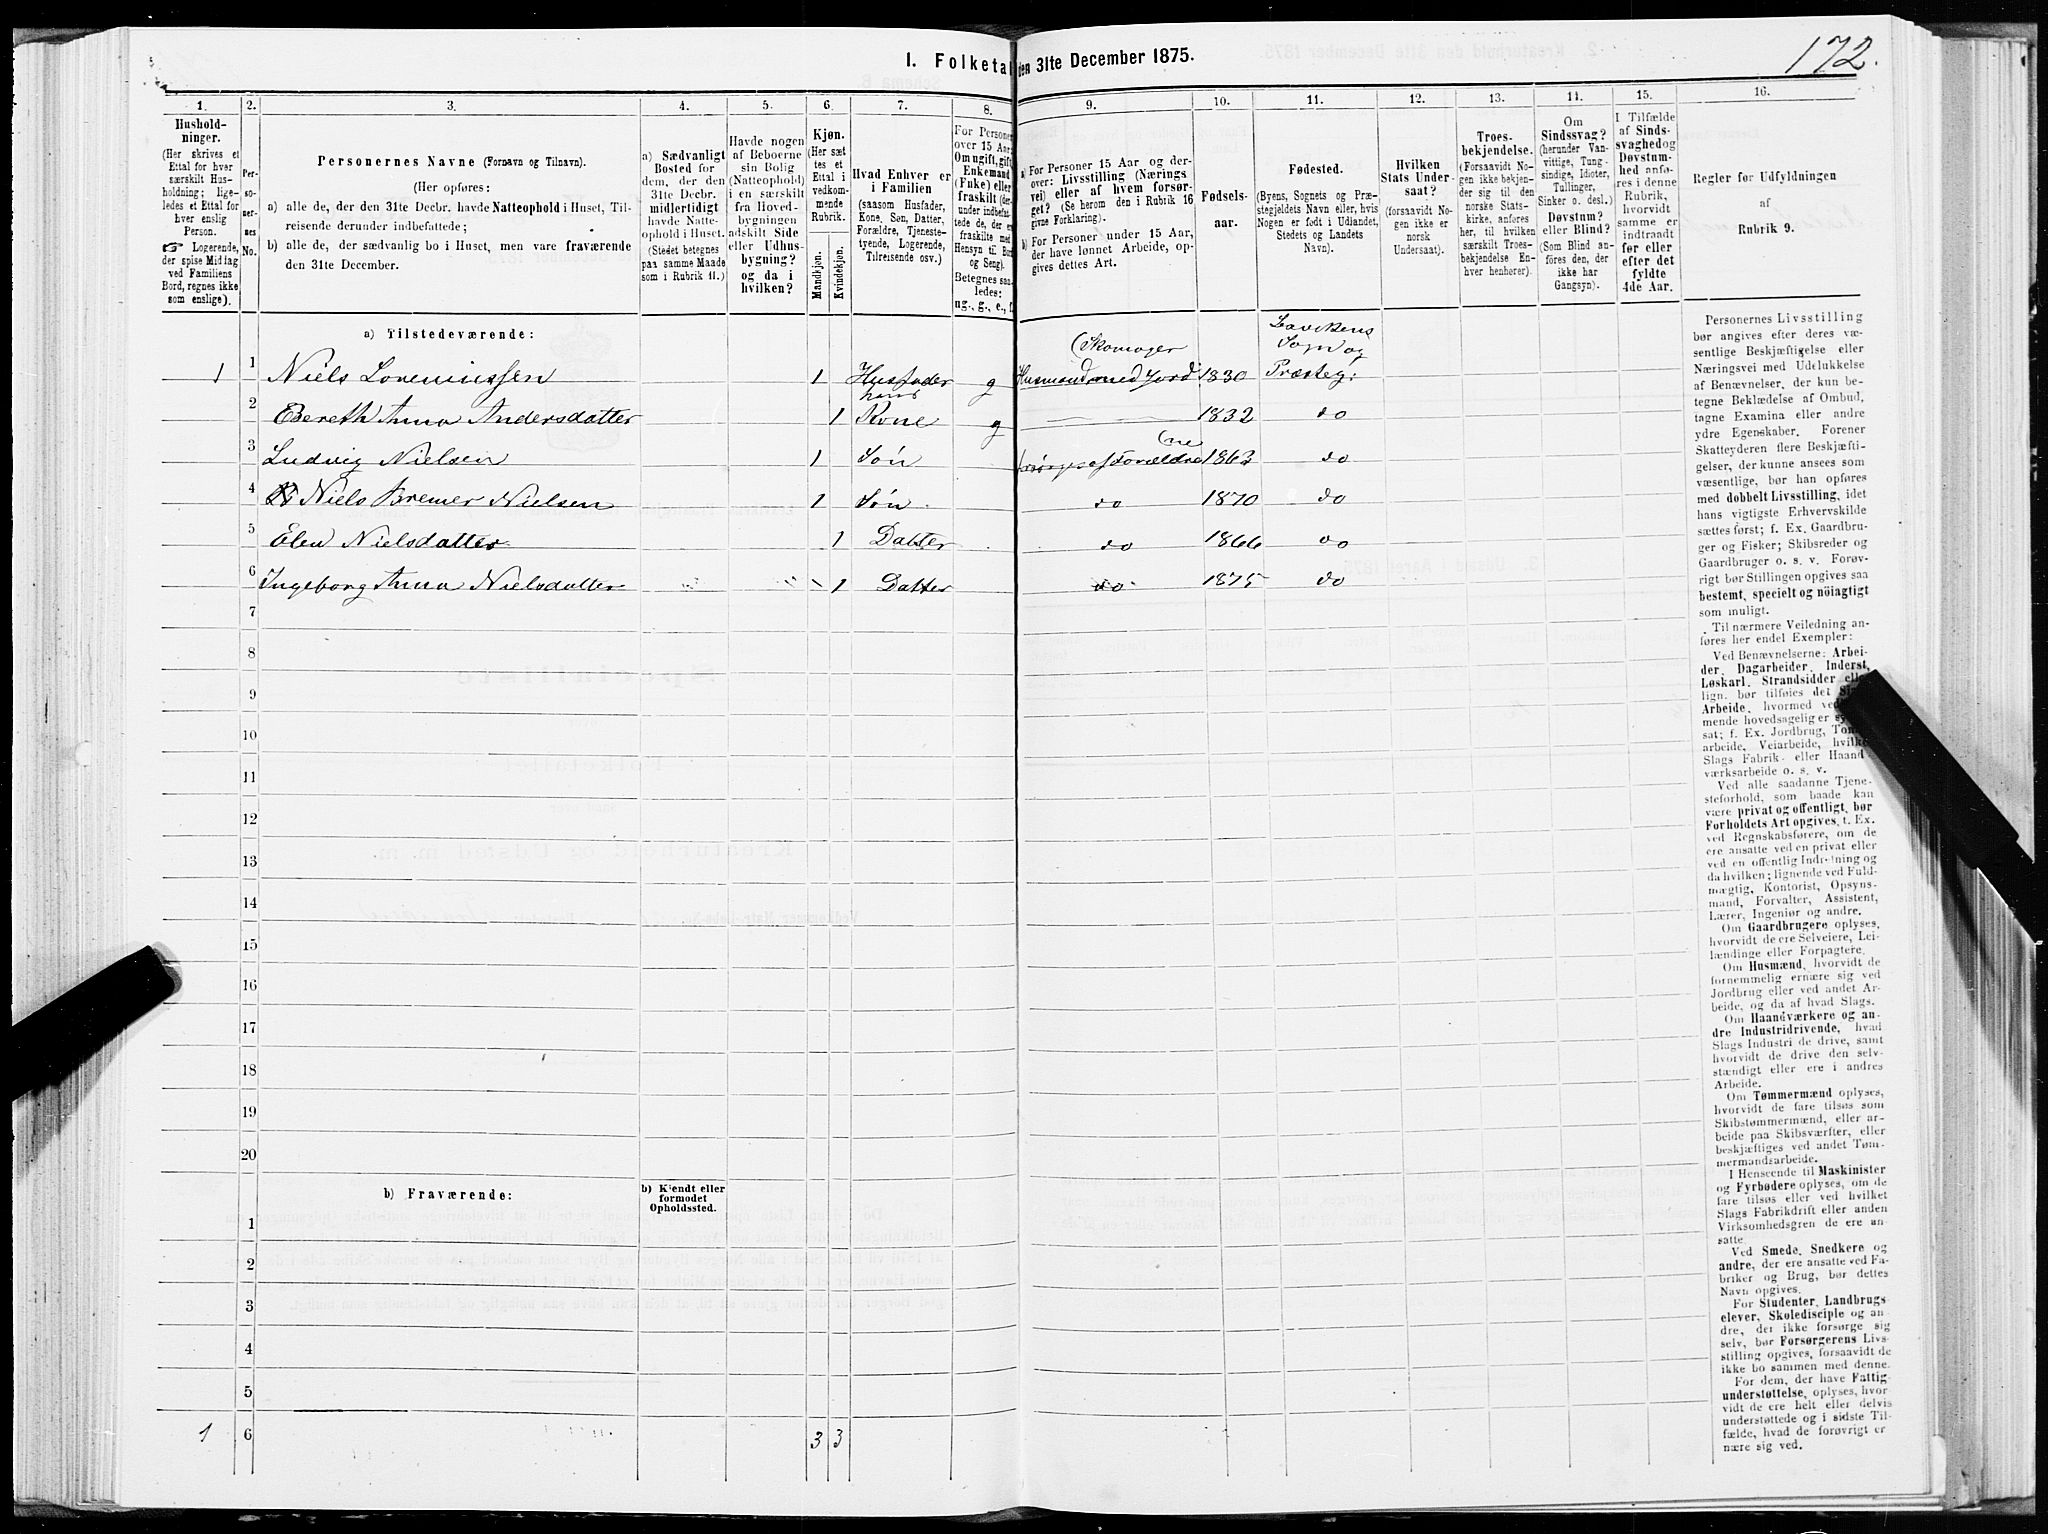 I. Folketal den 31te December 1875.
172.
1. 2. 3. 4. 5. 6. 7. 8. 9. 10. 11. 12. 13. 14. 15. 16.
Hushold-
ninger.
(Her skrives et
Ettal for hver
særskilt Hus-
holdning; lige-
ledes et Ettal for
hver enslig
Person.
☞ Logerende,
der spise Middag
ved Familiens
Bord, regnes ikke
som enslige).
Per-
so-
ner-
nes
No.
Personernes Navne (Fornavn og Tilnavn).
(Her opføres:
a) alle de, der den 31te Decbr. havde Natteophold i Huset, Til-
reisende derunder indbefattede;
b) alle de, der sædvanlig bo i Huset, men vare fraværende
den 31te December.
a) Sædvanligt
Bosted for
dem, der den
31te Decbr.
midlertidigt
havde Natte-
ophold i Huset.
(Stedet betegnes
paa samme Maade
som i Rubrik 11.)
Havde nogen
af Beboerne
sin Bolig
(Natteophold)
i en særskilt
fra Hoved-
bygningen
adskilt Side
eller Udhus-
bygning?
og da i
hvilken?
Kjøn.
(Her sæt-
tes et
Ettal i
vedkom-
mende
Rubrik.
Mandkjøn.
Kvindekjøn.
Hvad Enhver er
i Familien
(saasom Husfader,
Kone, Søn, Datter,
Forældre, Tjeneste-
tyende, Logerende,
Tilreisende osv.)
For Personer
over 15 Aar:
Om ugift, gift,
Enkemand
(Enke) eller
fraskilt (der-
under indbefat-
tede de, der ere
fraskilte med
Hensyn til Bord
og Seng).
Betegnes saa-
ledes:
ug., g., e., f.
a) For Personer 15 Aar og der-
over: Livsstilling (Nærings
vei) eller af hvem forsør-
get? (Se herom den i Rubrik 16
givne Forklaring).
b) For Personer under 15 Aar,
der have lønnet Arbeide, op-
gives dettes Art.
Fødsels-
aar.
Fødested.
(Byens, Sognets og Præ-
stegjeldets Navn eller, hvis
Nogen er født i Udlandet,
Stedets og Landets
Navn).
Hvilken
Stats Under-
saat?
(forsaavidt No-
gen ikke er
norsk
Undersaat).
Troes-
bekjendelse.
(Forsaavidt No-
gen ikke bekjen-
der sig til den
norske Stats-
kirke, anføres
her, til hvilken
særskilt Troes-
bekjendelse En-
hver henhører).
Om
Sindssvag?
(herunder Van-
vittige, Tung-
sindige, Idioter,
Tullinger,
Sinker o. desl.)
Døvstum?
eller Blind?
(Som Blind an-
føres den, der
ikke har
Gangsyn).
I Tilfælde
af Sinds-
svaghed og
Døvstum-
hed anfø-
res i denne
Rubrik,
hvorvidt
samme er
indtraadt
før eller
efter det
fyldte
4de Aar.
Regler for Udfyldningen
af
Rubrik 9.
a) Tilstedeværende:
1 1 Niels Loreniussen 1 Husfader g Skomager Husmand med Jord 1830 Lavikens Sogn og Præsteg:
2 Bereth Anna Andersdatter 1 hans Kone g 1832 do
3 Ludvig Nielsen 1 Søn forsørges af Forældrene 1863 do
4 Niels Bremer Nielsen 1 Søn do 1870 do
5 Elen Nielsdatter 1 Datter do 1866 do
6 Ingeborg Anna Nielsdatter 1 Datter do 1875 do
7
8
9
10
11
12
13
14
15
16
17
18
19
20
b) Fraværende:
b) Kjendt eller
formodet
Opholdssted.
1
2
3
4
5
1 6 3 3
Personernes Livsstilling
bør angives efter deres væ-
sentlige Beskjæftigelse eller
Næringsvei med Udelukkelse
af Benævnelser, der kun be-
tegne Beklædelse af Ombud,
tagne Examina eller andre
ydre Egenskaber. Forener
Skatteyderen flere Beskjæfti-
gelser, der kunne ansees som
væsentlige, bør han opføres
med dobbelt Livsstilling, idet
hans vigtigste Erhvervskilde
sættes først; f. Ex. Gaardbru-
ger og Fisker; Skibsreder og
Gaardbruger o. s. v. Forøv-
rigt bør Stillingen opgives saa
bestemt, specielt og nöiagtigt
som muligt.
Til nærmere Veiledning an-
føres her endel Exempler:
Ved Benævnelserne: Arbei-
der, Dagarbeider, Inderst,
Løskarl, Strandsidder eller
lign. bør tilføies det
Arbeide, hvormed
mende hovedsagelig er
sat; f. Ex. Jordbrug,
arbeide, Veiarbeide,
Slags Fabrik- eller Haand-
værksarbeide o. s. v.
Ved alle saadanne Tjene-
steforhold, som baade kan
være privat og offentligt, bør
Forholdets Art opgives, t. Ex.
ved Regnskabsførere, om de
ere ansatte ved en privat eller
ved en offentlig Indretning og
da hvilken; lignende ved Fuld-
mægtig, Kontorist, Opsyns-
mand, Forvalter, Assistent,
Lærer, Ingeniør og andre.
Om Gaardbrugere oplyses,
hvorvidt de ere Selveiere, Lei-
lændinge eller Forpagtere.
Om Husmænd, hvorvidt de
fornemmelig ernære sig ved
Jordbrug eller ved andet Ar-
beide, og da af hvad Slags.
Om Haandværkere og an-
dre Industridrivende, hvad
Slags Industri de drive, samt
hvorvidt de drive den selv-
stændigt eller ere i andres
Arbeide.
Om Tømmermænd oplyses,
hvorvidt de fare tilsøs som
Skibstømmermænd, eller ar-
beide paa Skibsværfter, eller
beskjæftiges ved andet Tøm-
mermandsarbeide.
I Henseende til Maskinister
og Fyrbødere oplyses, om de
fare tilsøs eller ved hvilket
Slags Fabrikdrift eller anden
Virksomhedsgren de ere an-
satte.
Ved Smede, Snedkere og
andre, der ere ansatte ved Fa-
briker og Brug, bør dettes
Navn opgives.
For Studenter, Landbrugs-
elever, Skoledisciple og an-
dre, der ikke forsørge sig
selv, bør Forsørgerens Livs-
stilling opgives, forsaavidt de
ikke bo sammen med denne.
For dem, der have Fattig-
understøttelse, oplyses, hvor-
vidt de ere helt eller delvis
understøttede og i sidste Til-
fælde, hvad de forøvrigt er
nære sig ved.